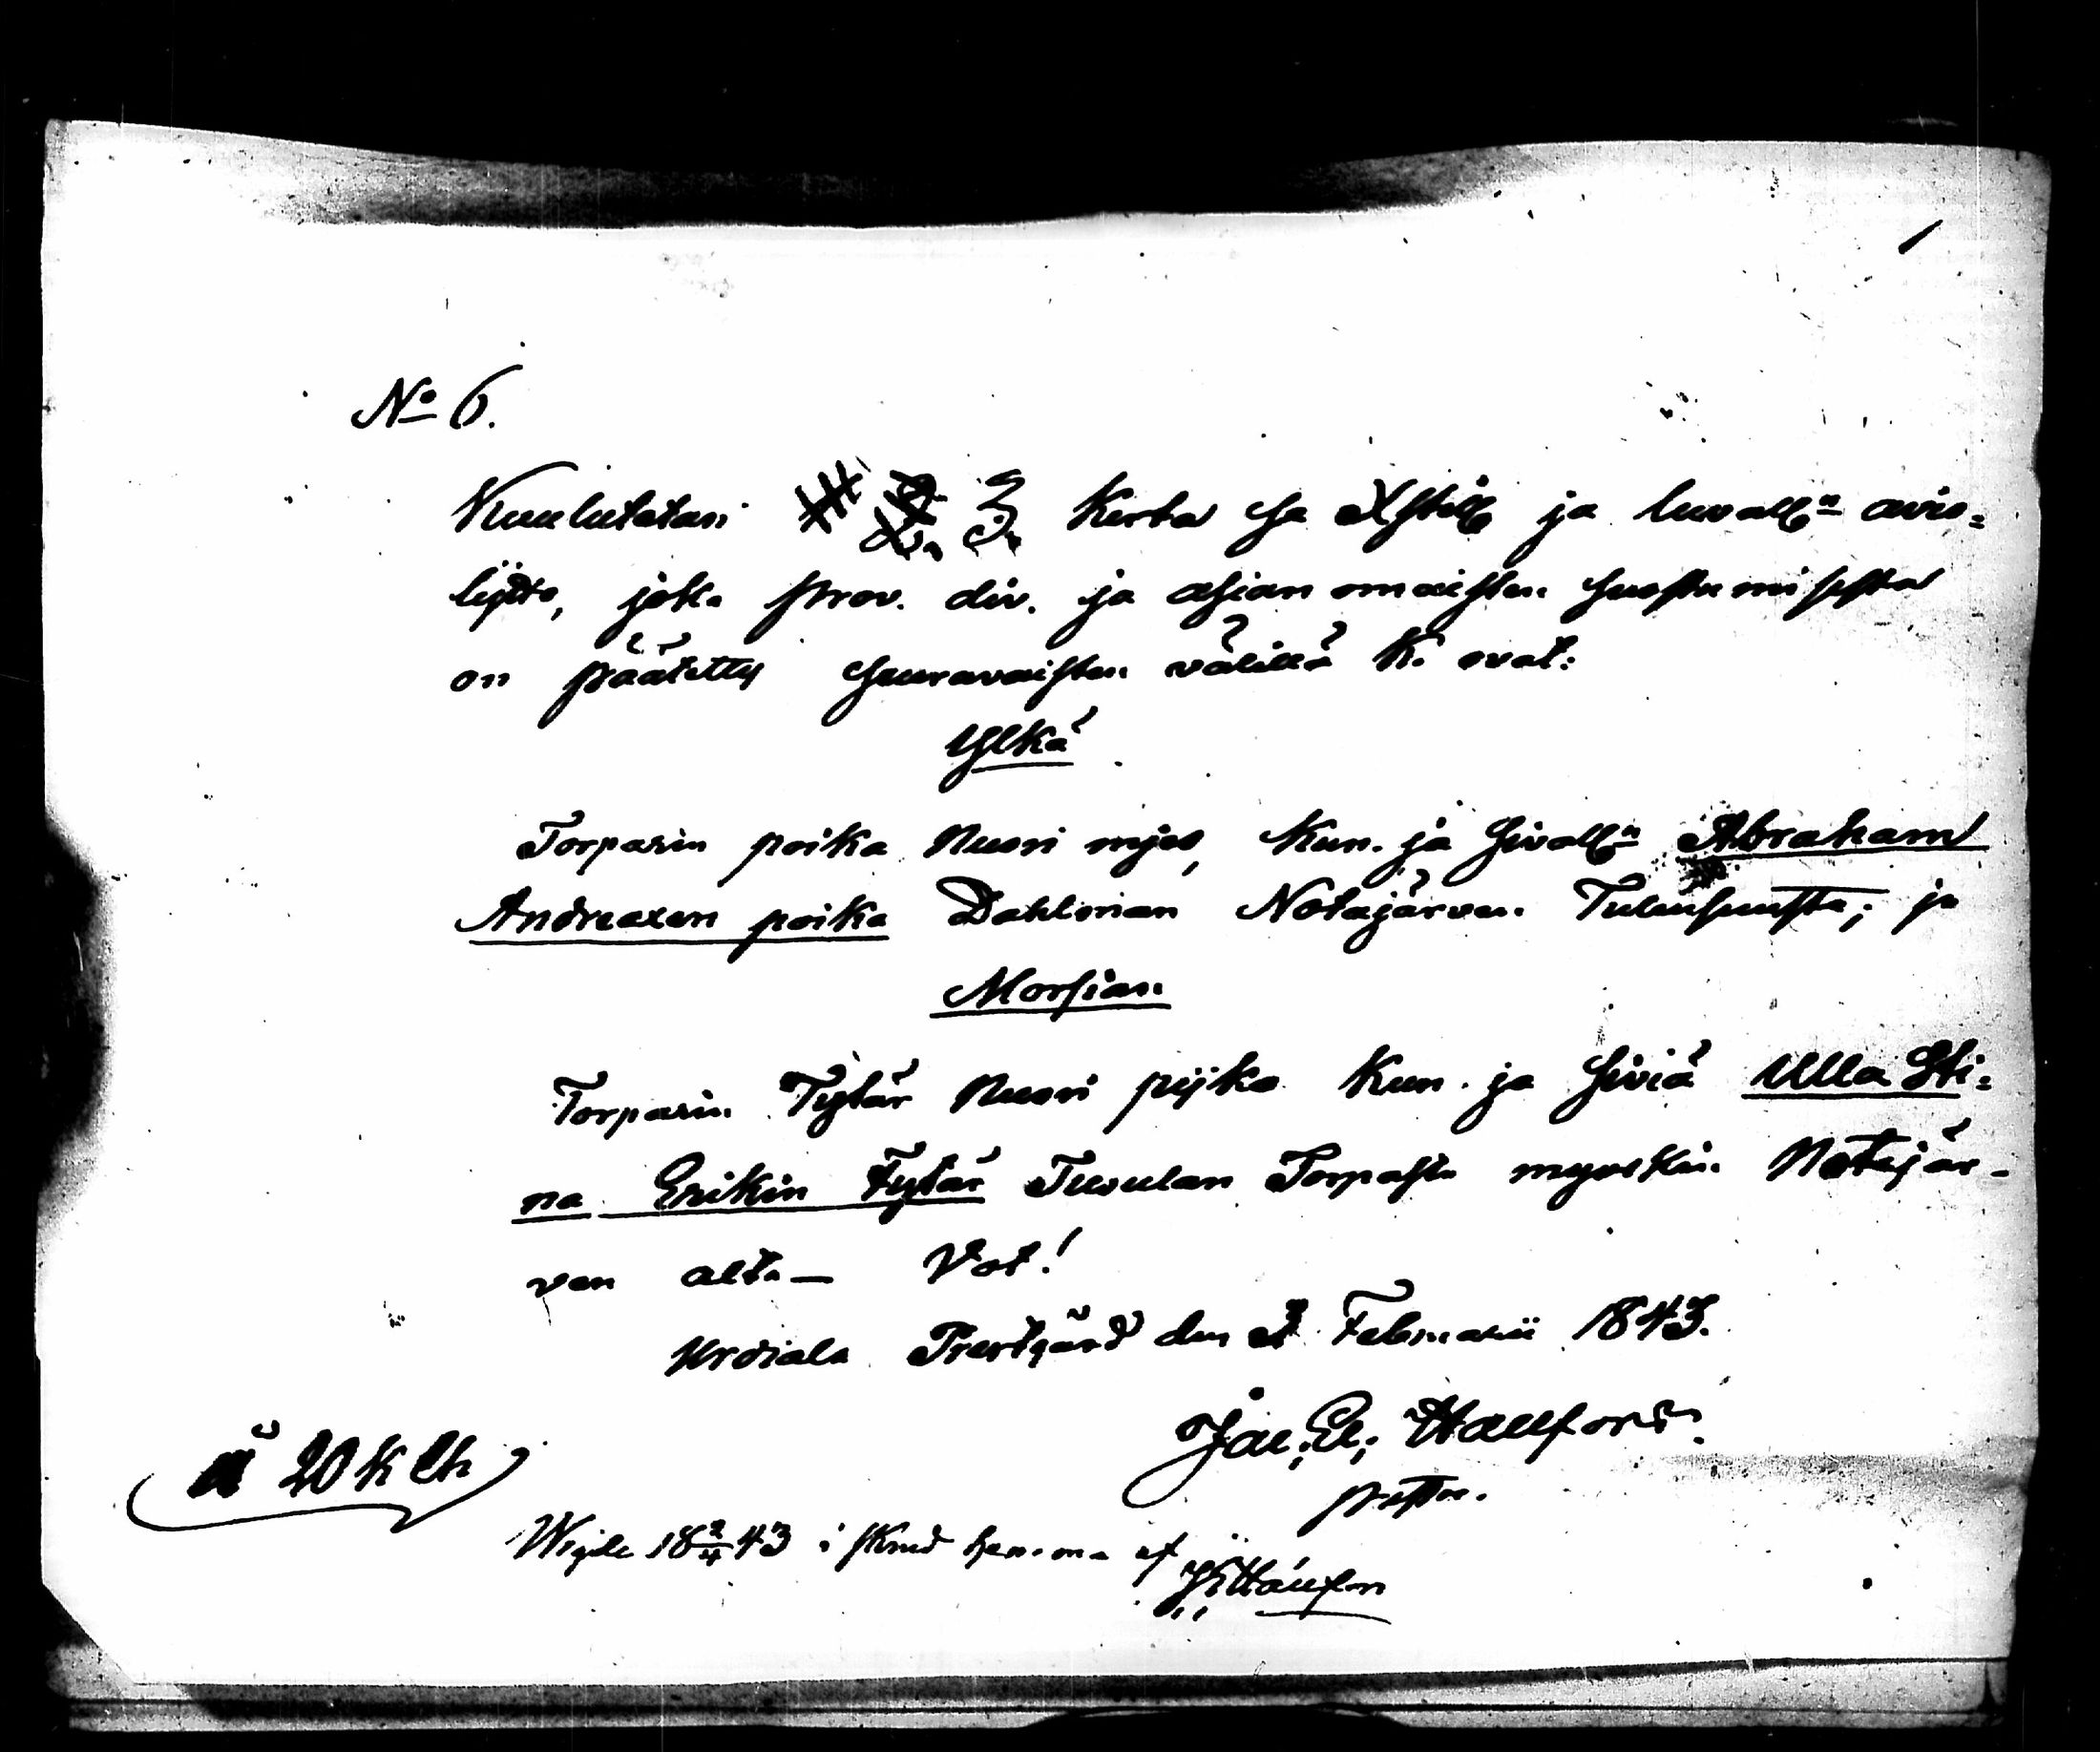 No 6.
Kuulutetan 3. Kerta Ja Xstill ja luvalln avio=
liitto, joka prov. div. ja asianomaisten suostumisesta
on päätetty seuravaisten välillä K. ovat:
Ylkä
Torparin poika Nuori mjes, Kun. ja sivalln Abraham
Andreaxen poika Dahlman Notajärven Tulensuusta; ja
Morsian
Torparin Tytär Nuori piika Kun. ja siviä Ulla Sti=
na Erikin Tytär Tuvulan Torpasta myöskin Notajär-
ven alta — Vot!
Urdiala Prestgård den 3 Februarii 1843.
Jac. Ed. Hallfors.
à 20 k
Wigde 18 2/4 43 i hemma af